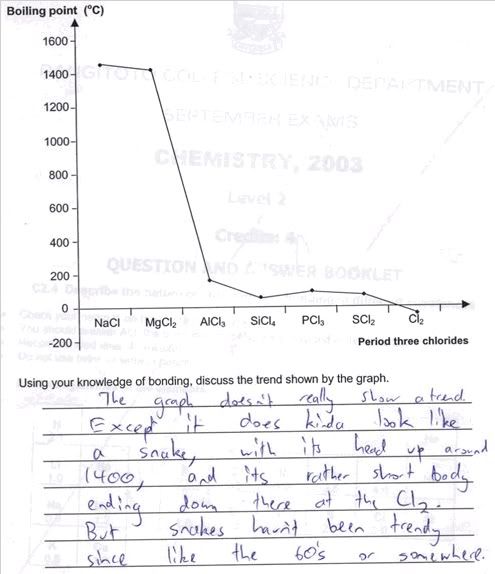 Boiling point (°C)
1600
1400
1200
1000
800
600
400
200
0
-200
NaCl MgCl₂ AlCl₃ SiCl₄ PCl₃ SCl₂ Cl₂
Period three chlorides
RANGITOTO COLLEGE SCIENCE DEPARTMENT
SEPTEMBER EXAMS
CHEMISTRY, 2003
Level 2
Credits: 4
QUESTION AND ANSWER BOOKLET
Using your knowledge of bonding, discuss the trend shown by the graph.
The graph doesn't really show a trend.
Except it does kinda look like
a snake, with its head up around
1400, and its rather short body
ending down there at the Cl2.
But snakes havn't been trendy
since like the 60's or somewhere.